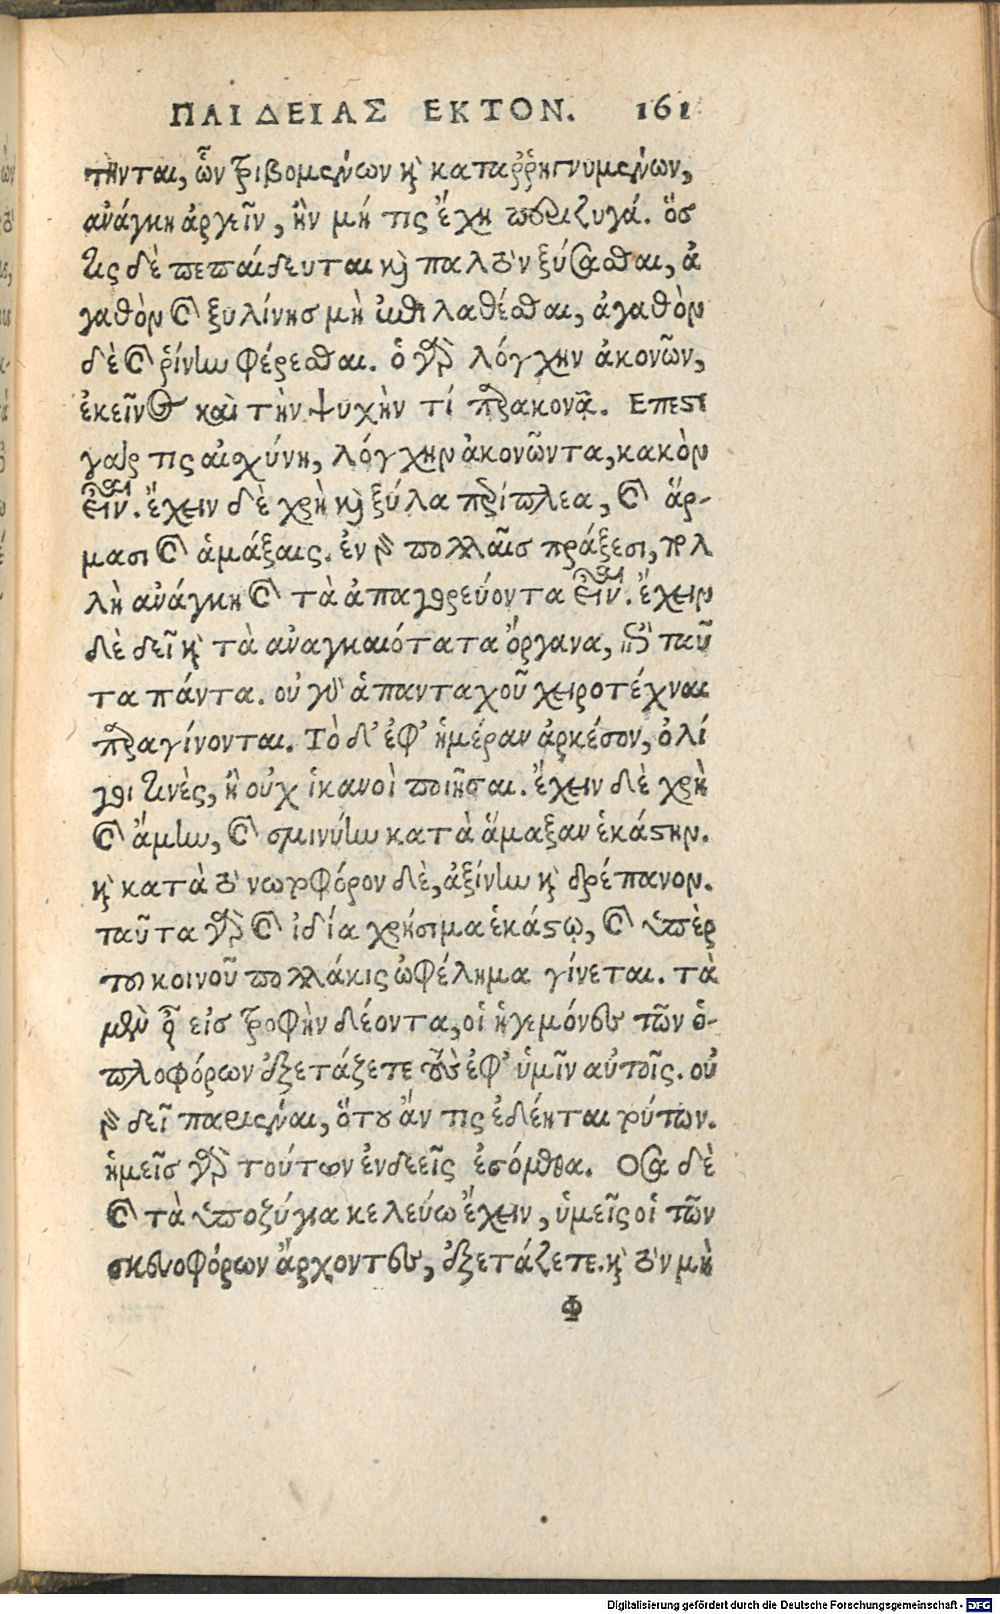 ΠΑΙΔΕΙΑΣ ΕΚΤΟΝ. 161
τηνται, ὧν τριβομένων καὶ καταῤῥηγνυμένων,
ἀνάγκη ἀργεῖν, ἢν μή τις ἔχῃ περιζυγά. ὅσ
τις δὲ πεπαίδευται καὶ παλτὸν ξύσασθαι, ἀ
γαθὸν καὶ ξυλίνησ μὴ ἐπιλαθέσθαι, ἀγαθὸν
δὲ καὶ ῥίνην φέρεσθαι. ὁ γὰρ λόγχην ἀκονῶν,
ἐκεῖνος καὶ τὴν ψυχήν τί παρακονᾷ. Επεστι
γάρ τις αἰσχύνη, λόγχην ἀκονῶντα, κακὸν
εἶναι. ἔχειν δὲ χρὴ καὶ ξύλα περίπλεα, καὶ ἅρ-
μασι καὶ ἁμάξαις. ἐν γὰρ πολλαῖσ πράξεσι, πολ
λὴ ἀνάγκη καὶ τὰ ἀπαγορεύοντα εἶναι. ἔχειν
δὲ δεῖ καὶ τὰ ἀναγκαιότατα ὄργανα, ἐπὶ ταῦ
τα πάντα. οὐ γὰρ ἁπανταχοῦ χειροτέχναι
παραγίνονται. Τὸ δ' ἐφ' ἡμέραν ἀρκέσον, ὀλί
γοι τινὲς, ἢ οὐχ ἱκανοὶ ποιῆσαι. ἔχειν δὲ χρὴ
καὶ ἄμην, καὶ σμινύην κατὰ ἅμαξαν ἑκάστην.
καὶ κατὰ τὸ νωτοφόρον δὲ, ἀξίνην καὶ δρέπανον.
ταῦτα γὰρ καὶ ἰδίᾳ χρήσιμα ἑκάστῳ, καὶ ὑπὲρ
του κοινοῦ πολλάκις ὠφέλημα γίνεται. τὰ
μὲν οὖν εἰσ τροφὴν δέοντα, οἱ ἡγεμόνες τῶν ὁ-
πλοφόρων ἐξετάζετε τοὺς ἐφ' ὑμῖν αὐτοῖς. οὐ
γὰρ δεῖ παριέναι, ὅτου ἄν τις ἐδέηται τούτων.
ἡμεῖσ γὰρ τούτων ἐνδεεῖς ἐσόμεθα. Οσα δὲ
καὶ τὰ ὑποζύγια κελεύω ἔχειν, ὑμεῖς οἱ τῶν
σκευοφόρων ἄρχοντες, ἐξετάζετε. καὶ τὸν μὴ
Φ
Digitalisierung gefördert durch die Deutsche Forschungsgemeinschaft - DFG